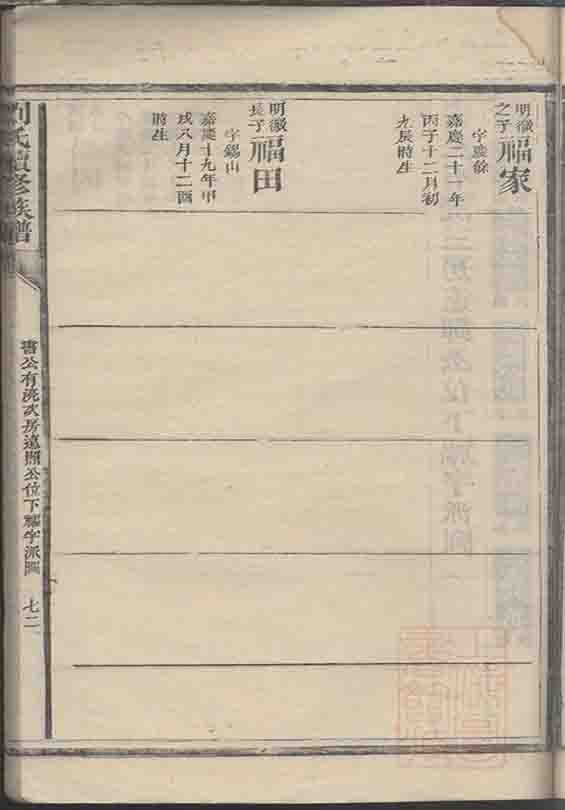 明徽
之子
福家
字慶餘
嘉慶二十一年
丙子十二月初
九辰時生
明徽
長子
福田
字錫山
嘉慶十九年甲
戌八月十二酉
時生
劉氏續修族譜
書公有洗次房遠關公位下福字派圖
七二